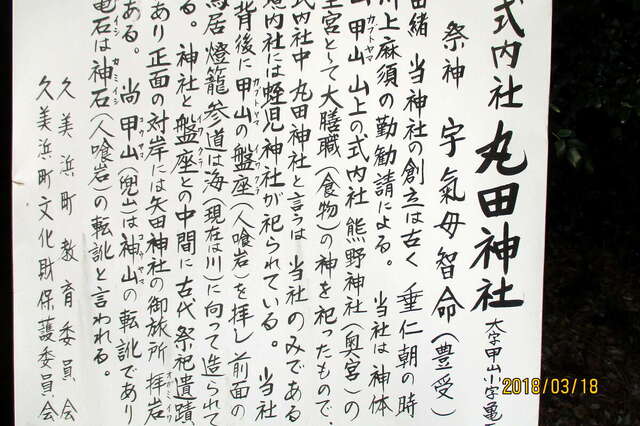 式内社 丸田神社 大字甲山小字亀
祭神 宇氣母智命(豊受)
由緒 当神社の創立は古く 垂仁朝の時
川上麻須の勤勧請による。 当社は神体
山甲山山上の式内社熊野神社(奥宮)の
里宮として大膳職(食物)の神を祀ったもので、
式内社中 丸田神社と言うは 当社のみである
境内社には蛭児神社が祀られている。 当社
背後に甲山の盤座(人喰岩)を拝し 前面の
鳥居 燈籠 参道は海(現在は川)に向って造られて
る。 神社と盤座との中間に古代祭祀遺蹟
あり正面の対岸には矢田神社の御旅所 拝岩
ある。 尚甲山(兜山)は神山の転訛であり
亀石は神石(人喰岩)の転訛と言われる。
久美浜町教育委員会
久美浜町文化財保護委員会
2018/03/18